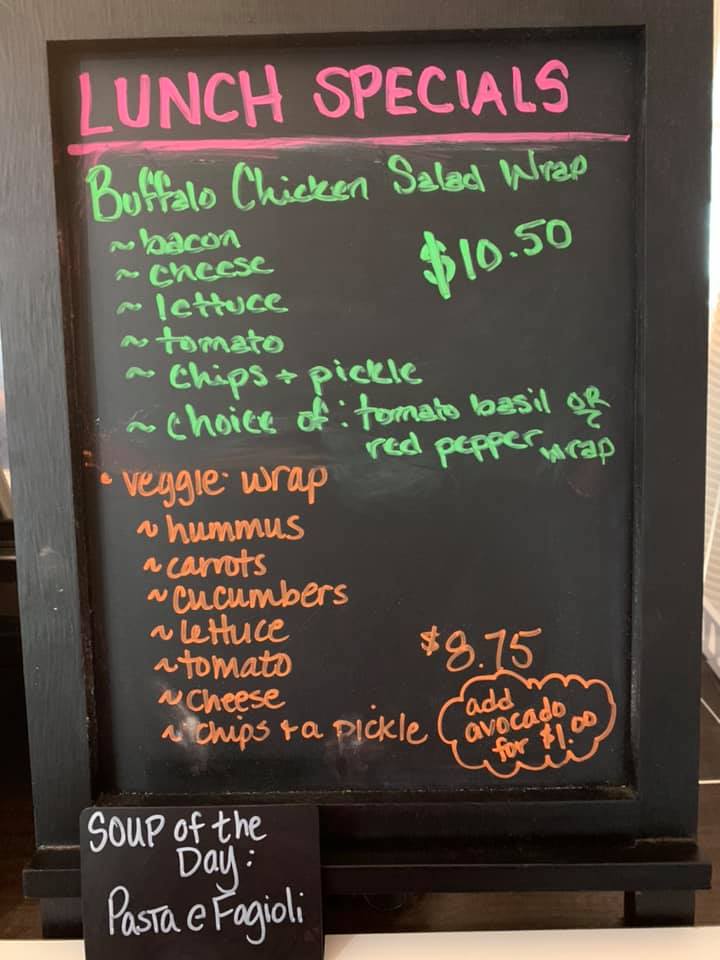 LUNCH SPECIALS
Buffalo Chicken Salad Wrap
~ bacon
$10.50
~ cheese
~ lettuce
~ tomato
~ chips + pickle
~ choice of: tomato basil OR
red pepper wrap
• veggie wrap
~ hummus
~ carrots
~ cucumbers
~ lettuce
~ tomato
$8.75
~ cheese
~ chips + a pickle
add
avocado
for $1.00
SOUP of the
Day:
Pasta e Fagioli